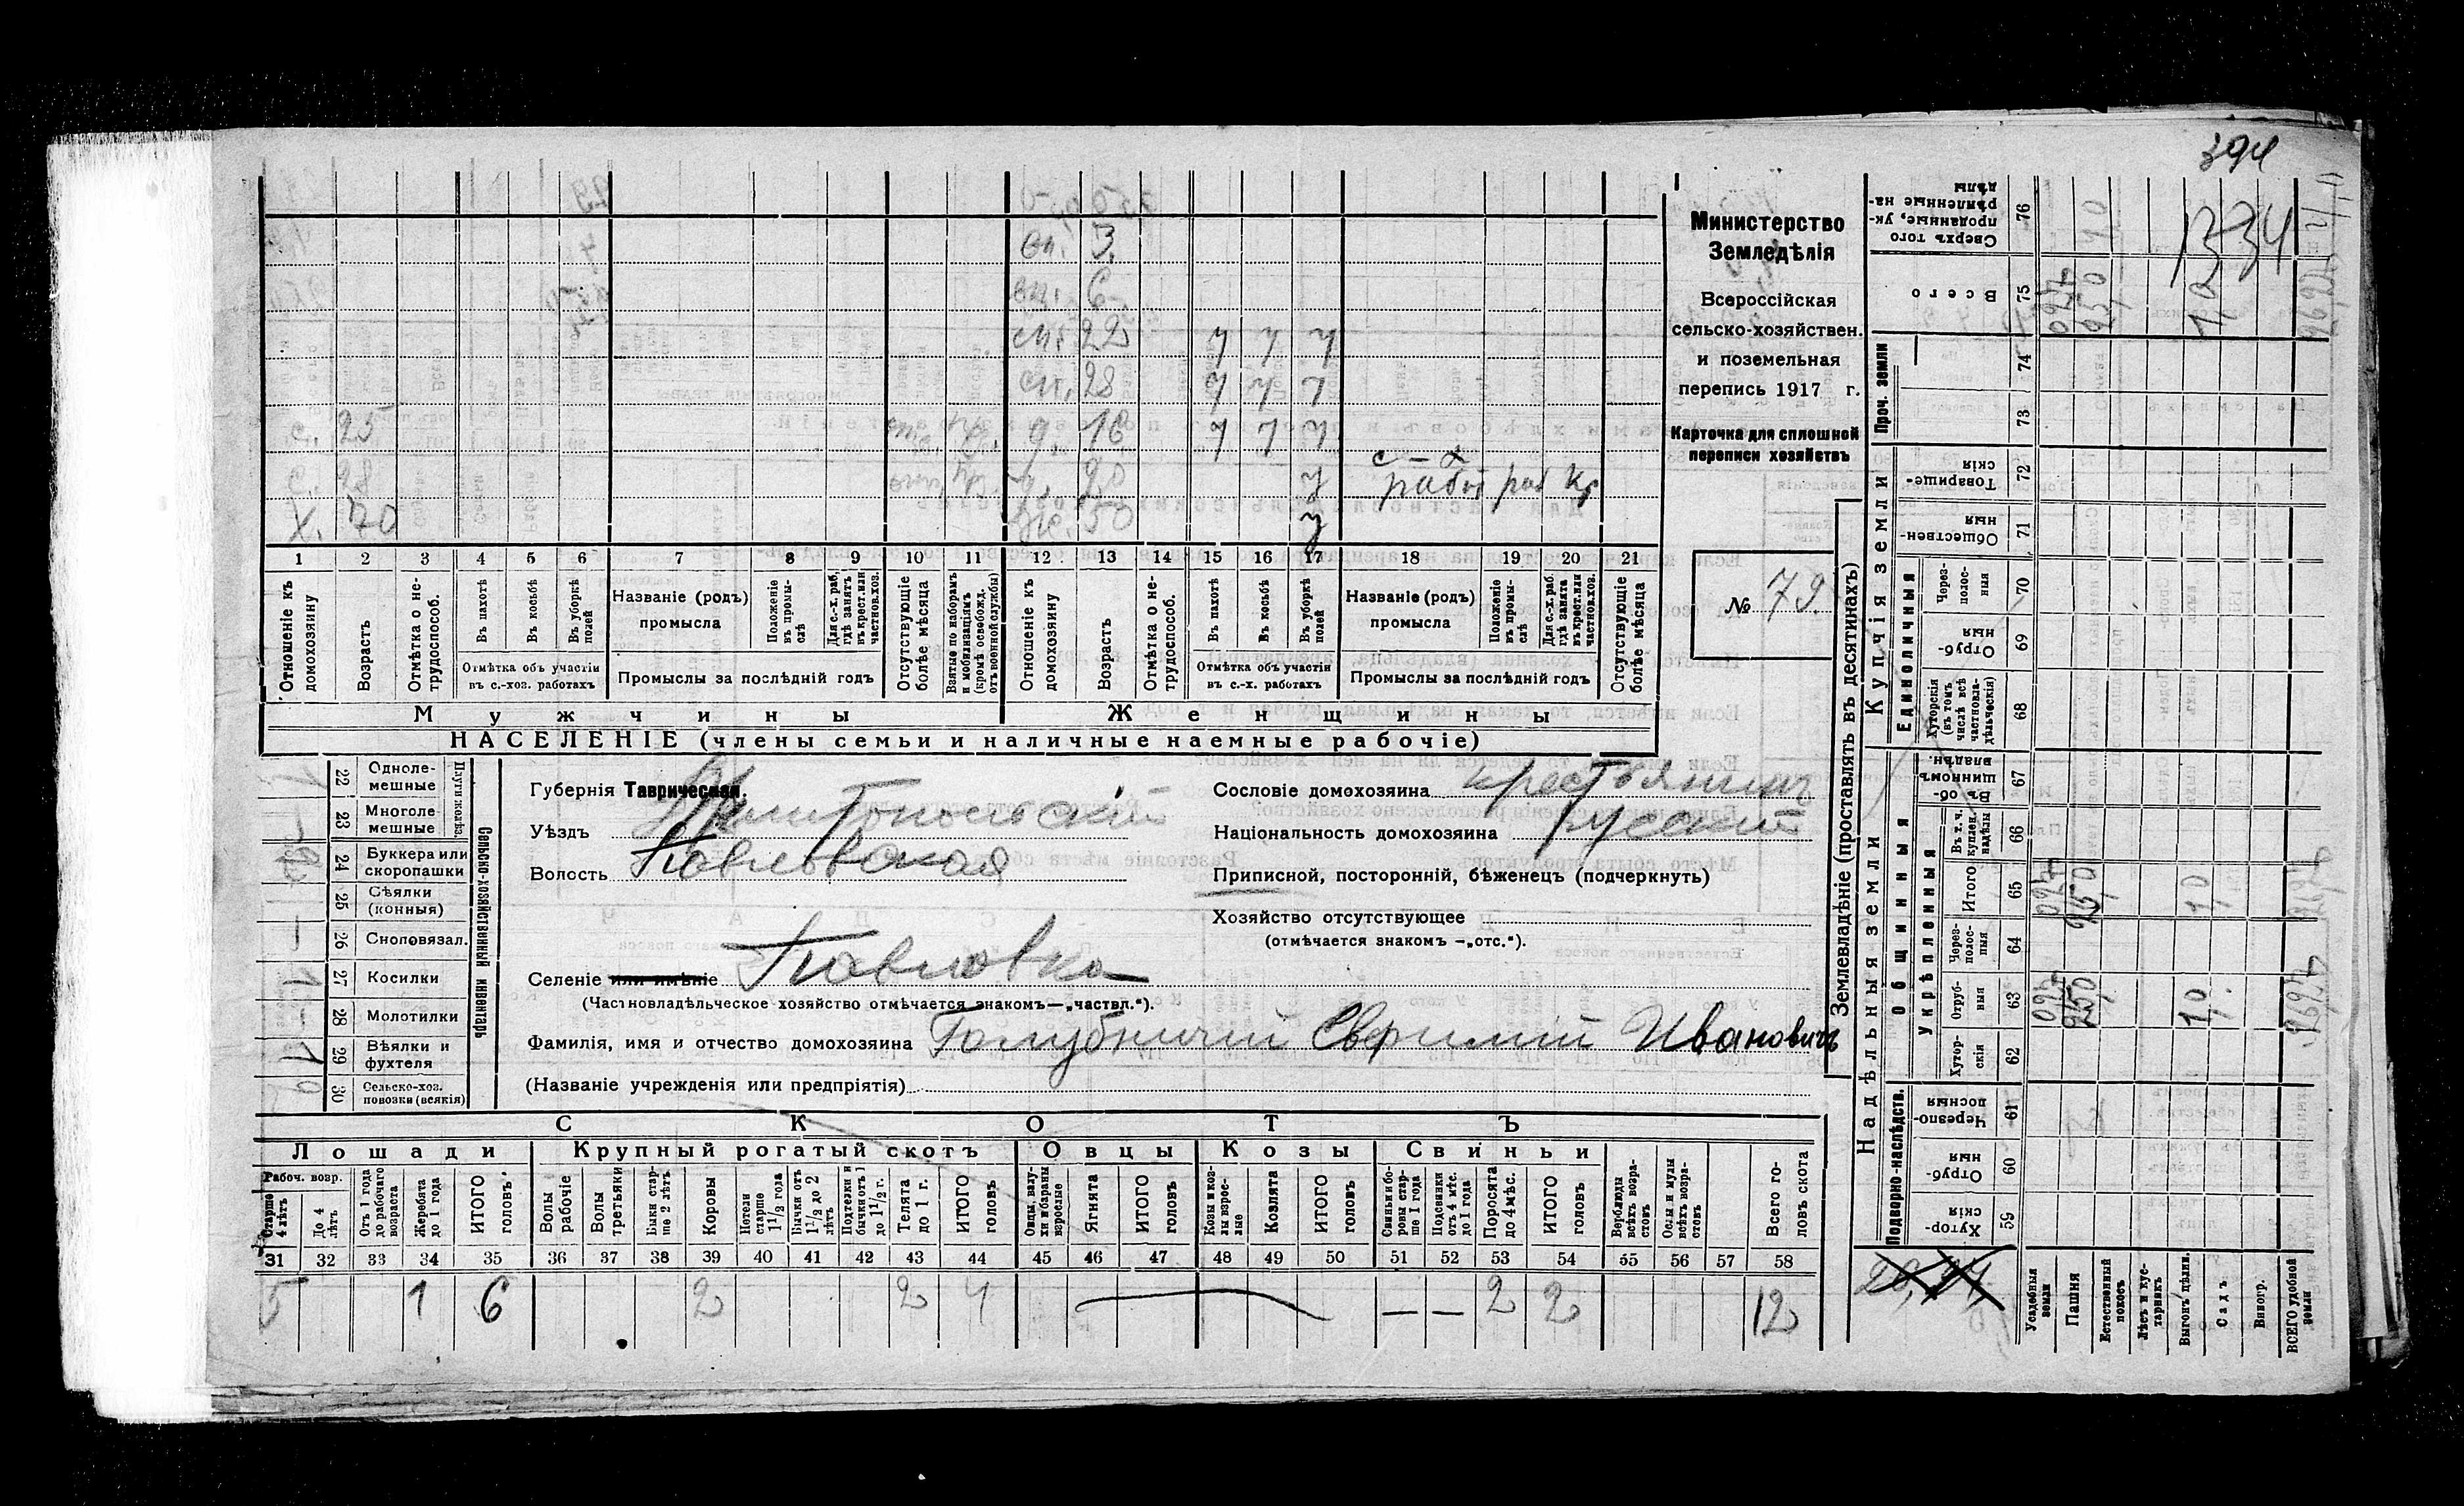 394
1334
Министерство
Земледѣлія
Всероссійская
сельско-хозяйствен.
и поземельная
перепись 1917 г.
Карточка для сплошной
переписи хозяйствъ
№ 79.
сн. 3.
сн. 6
сн. 22 7 7 7
сн. 28 7 7 7
с. 25 д. 16 7 7 7
с. 28 д. 20 7 с-х работ раб кр
Х. 70 ж. 50 7
1 2 3 4 5 6 7 8 9 10 11 12 13 14 15 16 17 18 19 20 21
Отношеніе къ домохозяину
Возрастъ
Отмѣтка о нетрудоспособ.
Въ пахотѣ
Въ косьбѣ
Въ уборкѣ полей
Отмѣтка объ участіи
въ с.-хоз. работахъ
Названіе (родъ)
промысла
Положеніе въ промыслѣ
Для с.-х. раб. гдѣ занятъ въ крест. или частнов. хоз.
Промыслы за послѣдній годъ
Отсутствующіе болѣе мѣсяца
Взятые по наборамъ и мобилизаціямъ (кромѣ освобожд. отъ военной службы)
Отношеніе къ домохозяину
Возрастъ
Отмѣтка о нетрудоспособ.
Въ пахотѣ
Въ косьбѣ
Въ уборкѣ полей
Отмѣтка объ участіи
въ с.-х. работахъ
Названіе (родъ)
промысла
Положеніе въ промыслѣ
Для с.-х. раб. гдѣ занята въ крест. или частнов. хоз.
Промыслы за послѣдній годъ
Отсутствующіе болѣе мѣсяца
Мужчины Женщины
НАСЕЛЕНІЕ (члены семьи и наличные наемные рабочіе)
Сельско-хозяйственный инвентарь
Плуги желѣз.
22 Однолемешные
23 Многолемешные
24 Буккера или скоропашки
25 Сѣялки (конныя)
26 Сноповязал.
27 Косилки 1
28 Молотилки
29 Вѣялки и фухтеля 1
30 Сельско-хоз. повозки (всякія)
Губернія Таврическая.
Уѣздъ Мелитопольскій
Волость Павловская
Селеніе или имѣніе Павловка
(Частновладѣльческое хозяйство отмѣчается знакомъ—„частвл.“).
Фамилія, имя и отчество домохозяина Голубничий Евфимій Ивановичъ
(Названіе учрежденія или предпріятія)
Сословіе домохозяина крестьянинъ
Національность домохозяина русский
Приписной, посторонній, бѣженецъ (подчеркнуть)
Хозяйство отсутствующее
(отмѣчается знакомъ —„отс.“).
СКОТЪ
Лошади Крупный рогатый скотъ Овцы Козы Свиньи
Рабоч. возр.
Старше 4 лѣтъ
До 4 лѣтъ
Отъ 1 года до рабочаго возраста
Жеребята до 1 года
ИТОГО головъ
Волы рабочіе
Волы третьяки
Быки старше 2 лѣтъ
Коровы
Нетели старше 1 1/2 года
Бычки отъ 1 1/2 до 2 лѣтъ
Подтелки и бычки отъ 1 до 1 1/2 г.
Телята до 1 г.
ИТОГО головъ
Овцы, валухи и бараны взрослые
Ягнята
ИТОГО головъ
Козы и козлы взрослые
Козлята
ИТОГО головъ
Свиньи и боровы старше 1 года
Подсвинки отъ 4 мѣс. до 1 года
Поросята до 4 мѣс.
ИТОГО головъ
Верблюды всѣхъ возрастовъ
Ослы и мулы всѣхъ возрастовъ
Всего головъ скота
31 32 33 34 35 36 37 38 39 40 41 42 43 44 45 46 47 48 49 50 51 52 53 54 55 56 57 58
5 1 6 2 2 4 — — 2 2 12
Землевладѣніе (проставлять въ десятинахъ)
Надѣльныя земли
Купчія земли
Подворно-наслѣдств.
Общинныя
Укрѣпленныя
Единоличныя
Проч. земли
Хуторскія 59
Отрубныя 60
Черезполосныя 61
Хуторскія 62
Отрубныя 63 0,27 25,0 1,0 26,27
Черезполосныя 64
Итого 65 0,27 25,0 1,0
Въ т. ч. куплен. надѣлы 66
Въ общинномъ владѣн. 67
Хуторскія (въ томъ числѣ всѣ частновладѣльческія) 68
Отрубныя 69
Черезполосныя 70
Общественныя 71
Товарищескія 72
73
74
Всего 75 0,27 25,0 1,0 26,27
Сверхъ того проданные, укрѣпленные надѣлы 76
Усадебныя земли
Пашня
Естественный покосъ
Лѣсъ и кустарникъ
Выгонъ цѣлин.
Садъ
Виногр.
ВСЕГО удобной земли